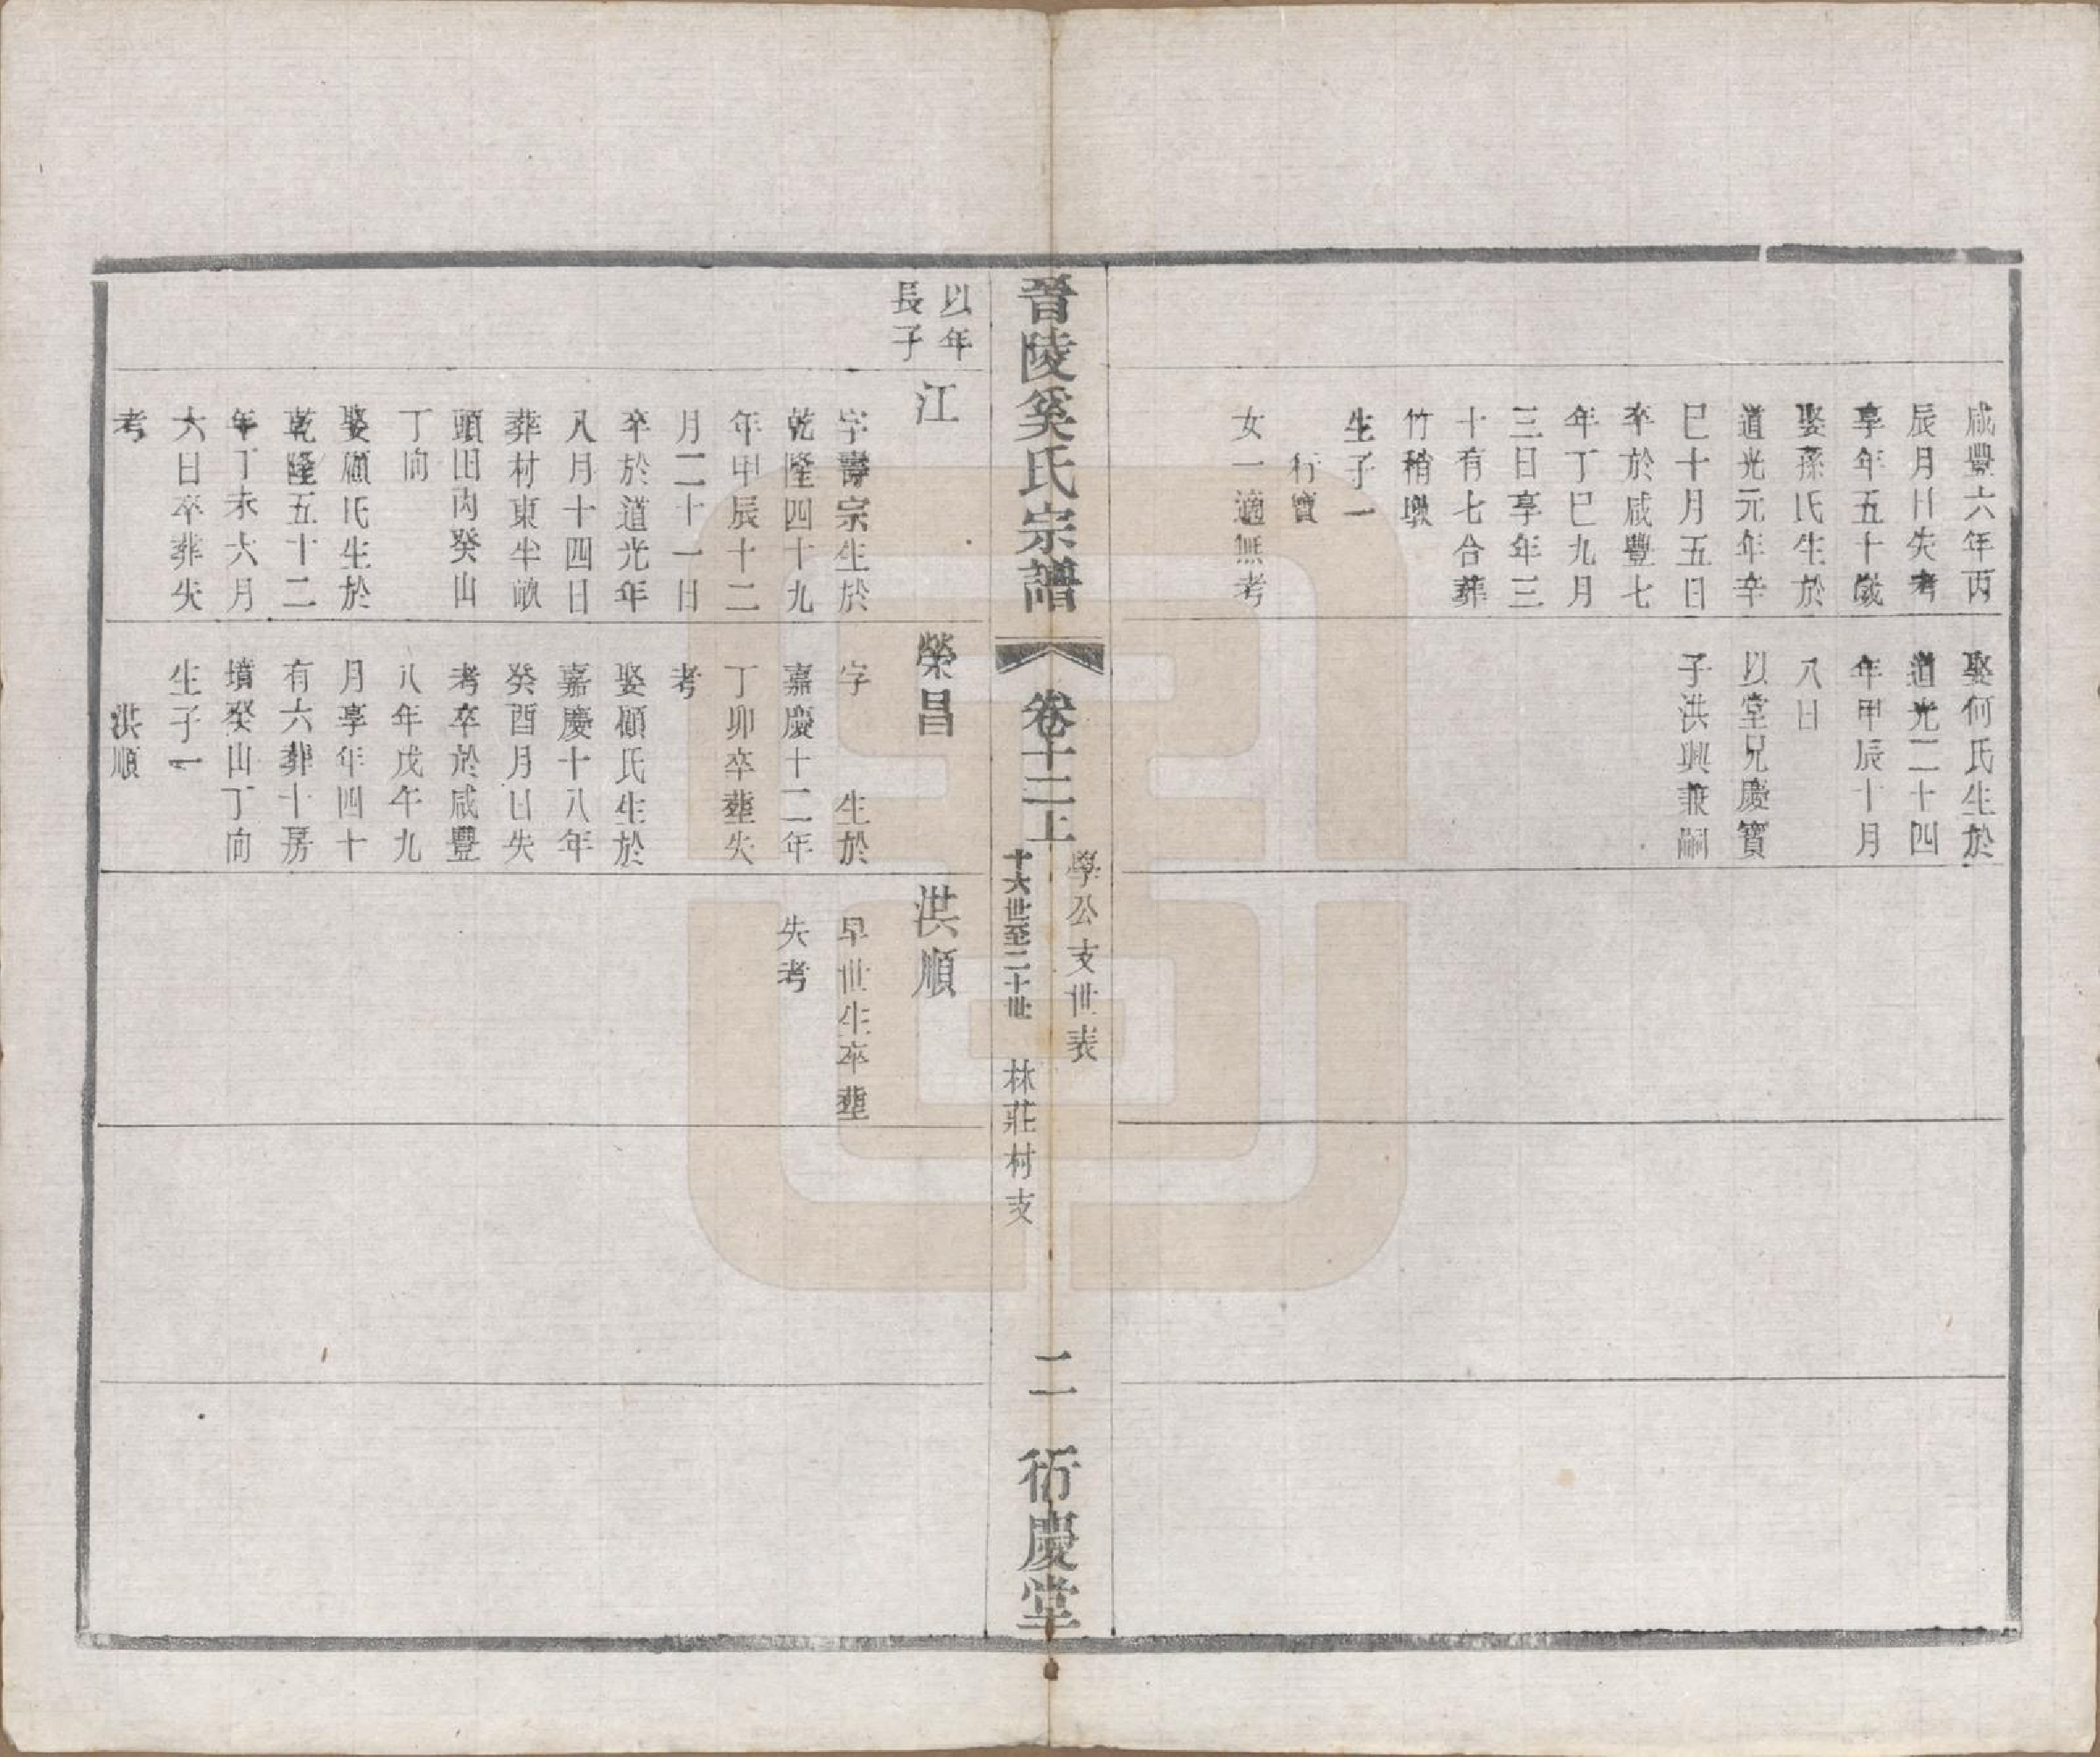 咸豐六年丙
辰月日失考
享年五十歲
娶孫氏生於
道光元年辛
巳十月五日
卒於咸豐七
年丁巳九月
三日享年三
十有七合葬
竹稍墩
生子一
行寶
女一適無考
娶何氏生於
道光二十四
年甲辰十月
八日
以堂兄慶寶
子洪興兼嗣
晉陵奚氏宗譜
卷十二上
學公支世表
十六世至二十世 林莊村支
二
衍慶堂
以年
長子
江
字壽宗生於
乾隆四十九
年甲辰十二
月二十一日
卒於道光年
八月十四日
葬村東半畝
頭田內癸山
丁向
娶顧氏生於
乾隆五十二
年丁未六月
六日卒葬失
考
榮昌
字 生於
嘉慶十二年
丁卯卒塟失
考
娶顧氏生於
嘉慶十八年
癸酉月日失
考卒於咸豐
八年戊午九
月享年四十
有六葬十房
墳癸山丁向
生子一
洪順
洪順
早世生卒塟
失考